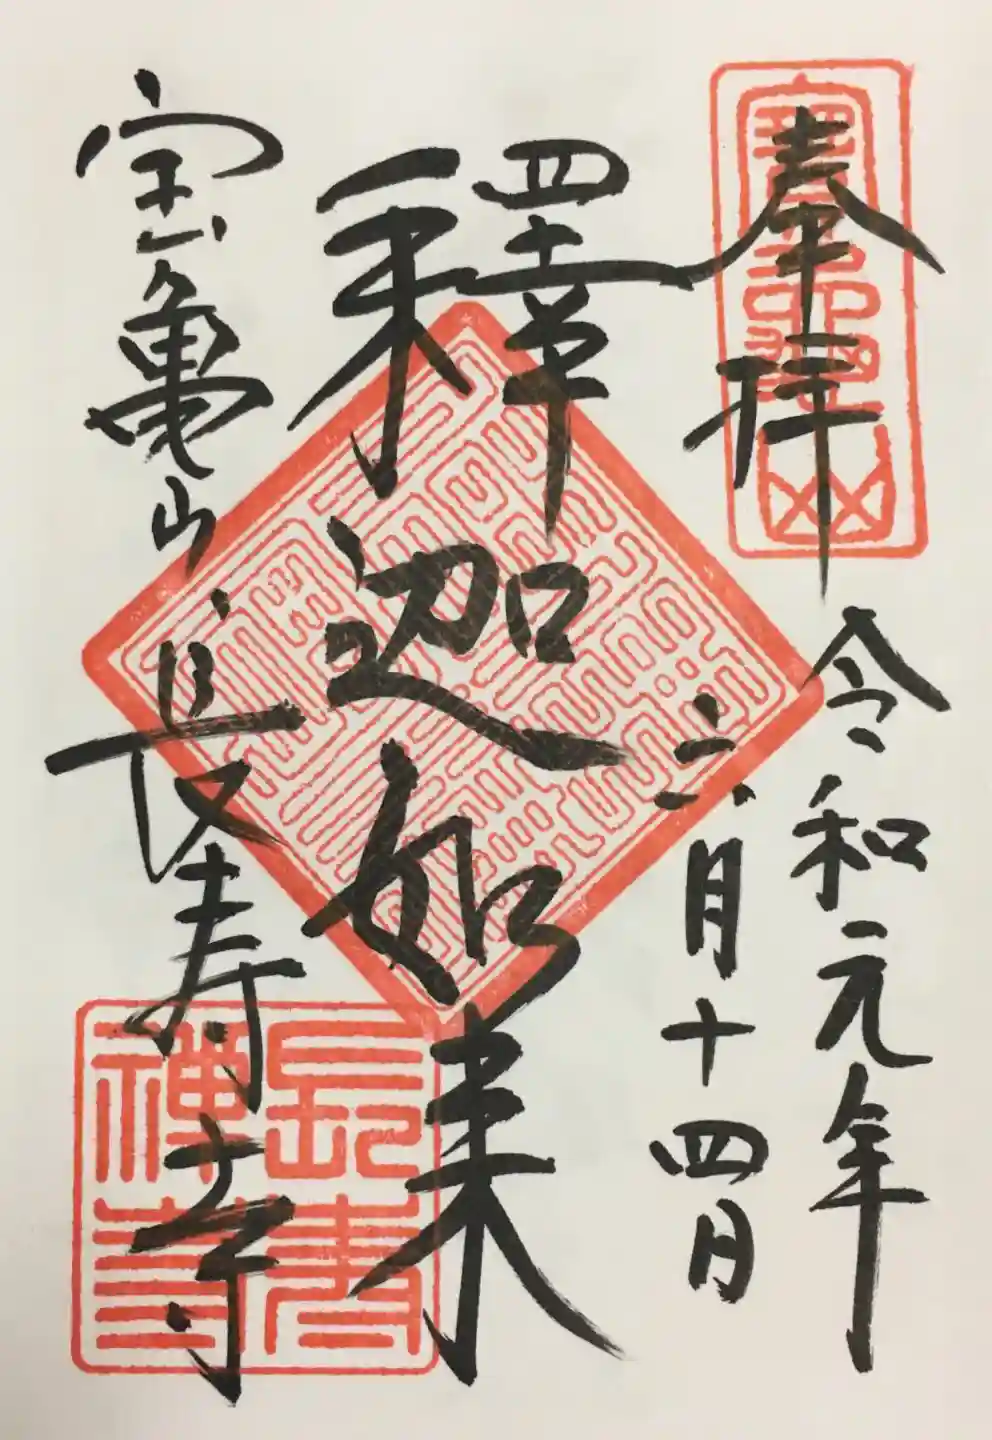 奉拝
令和元年
六月十四日
釋迦如来
宝亀山
長寿寺
長寿
禅寺